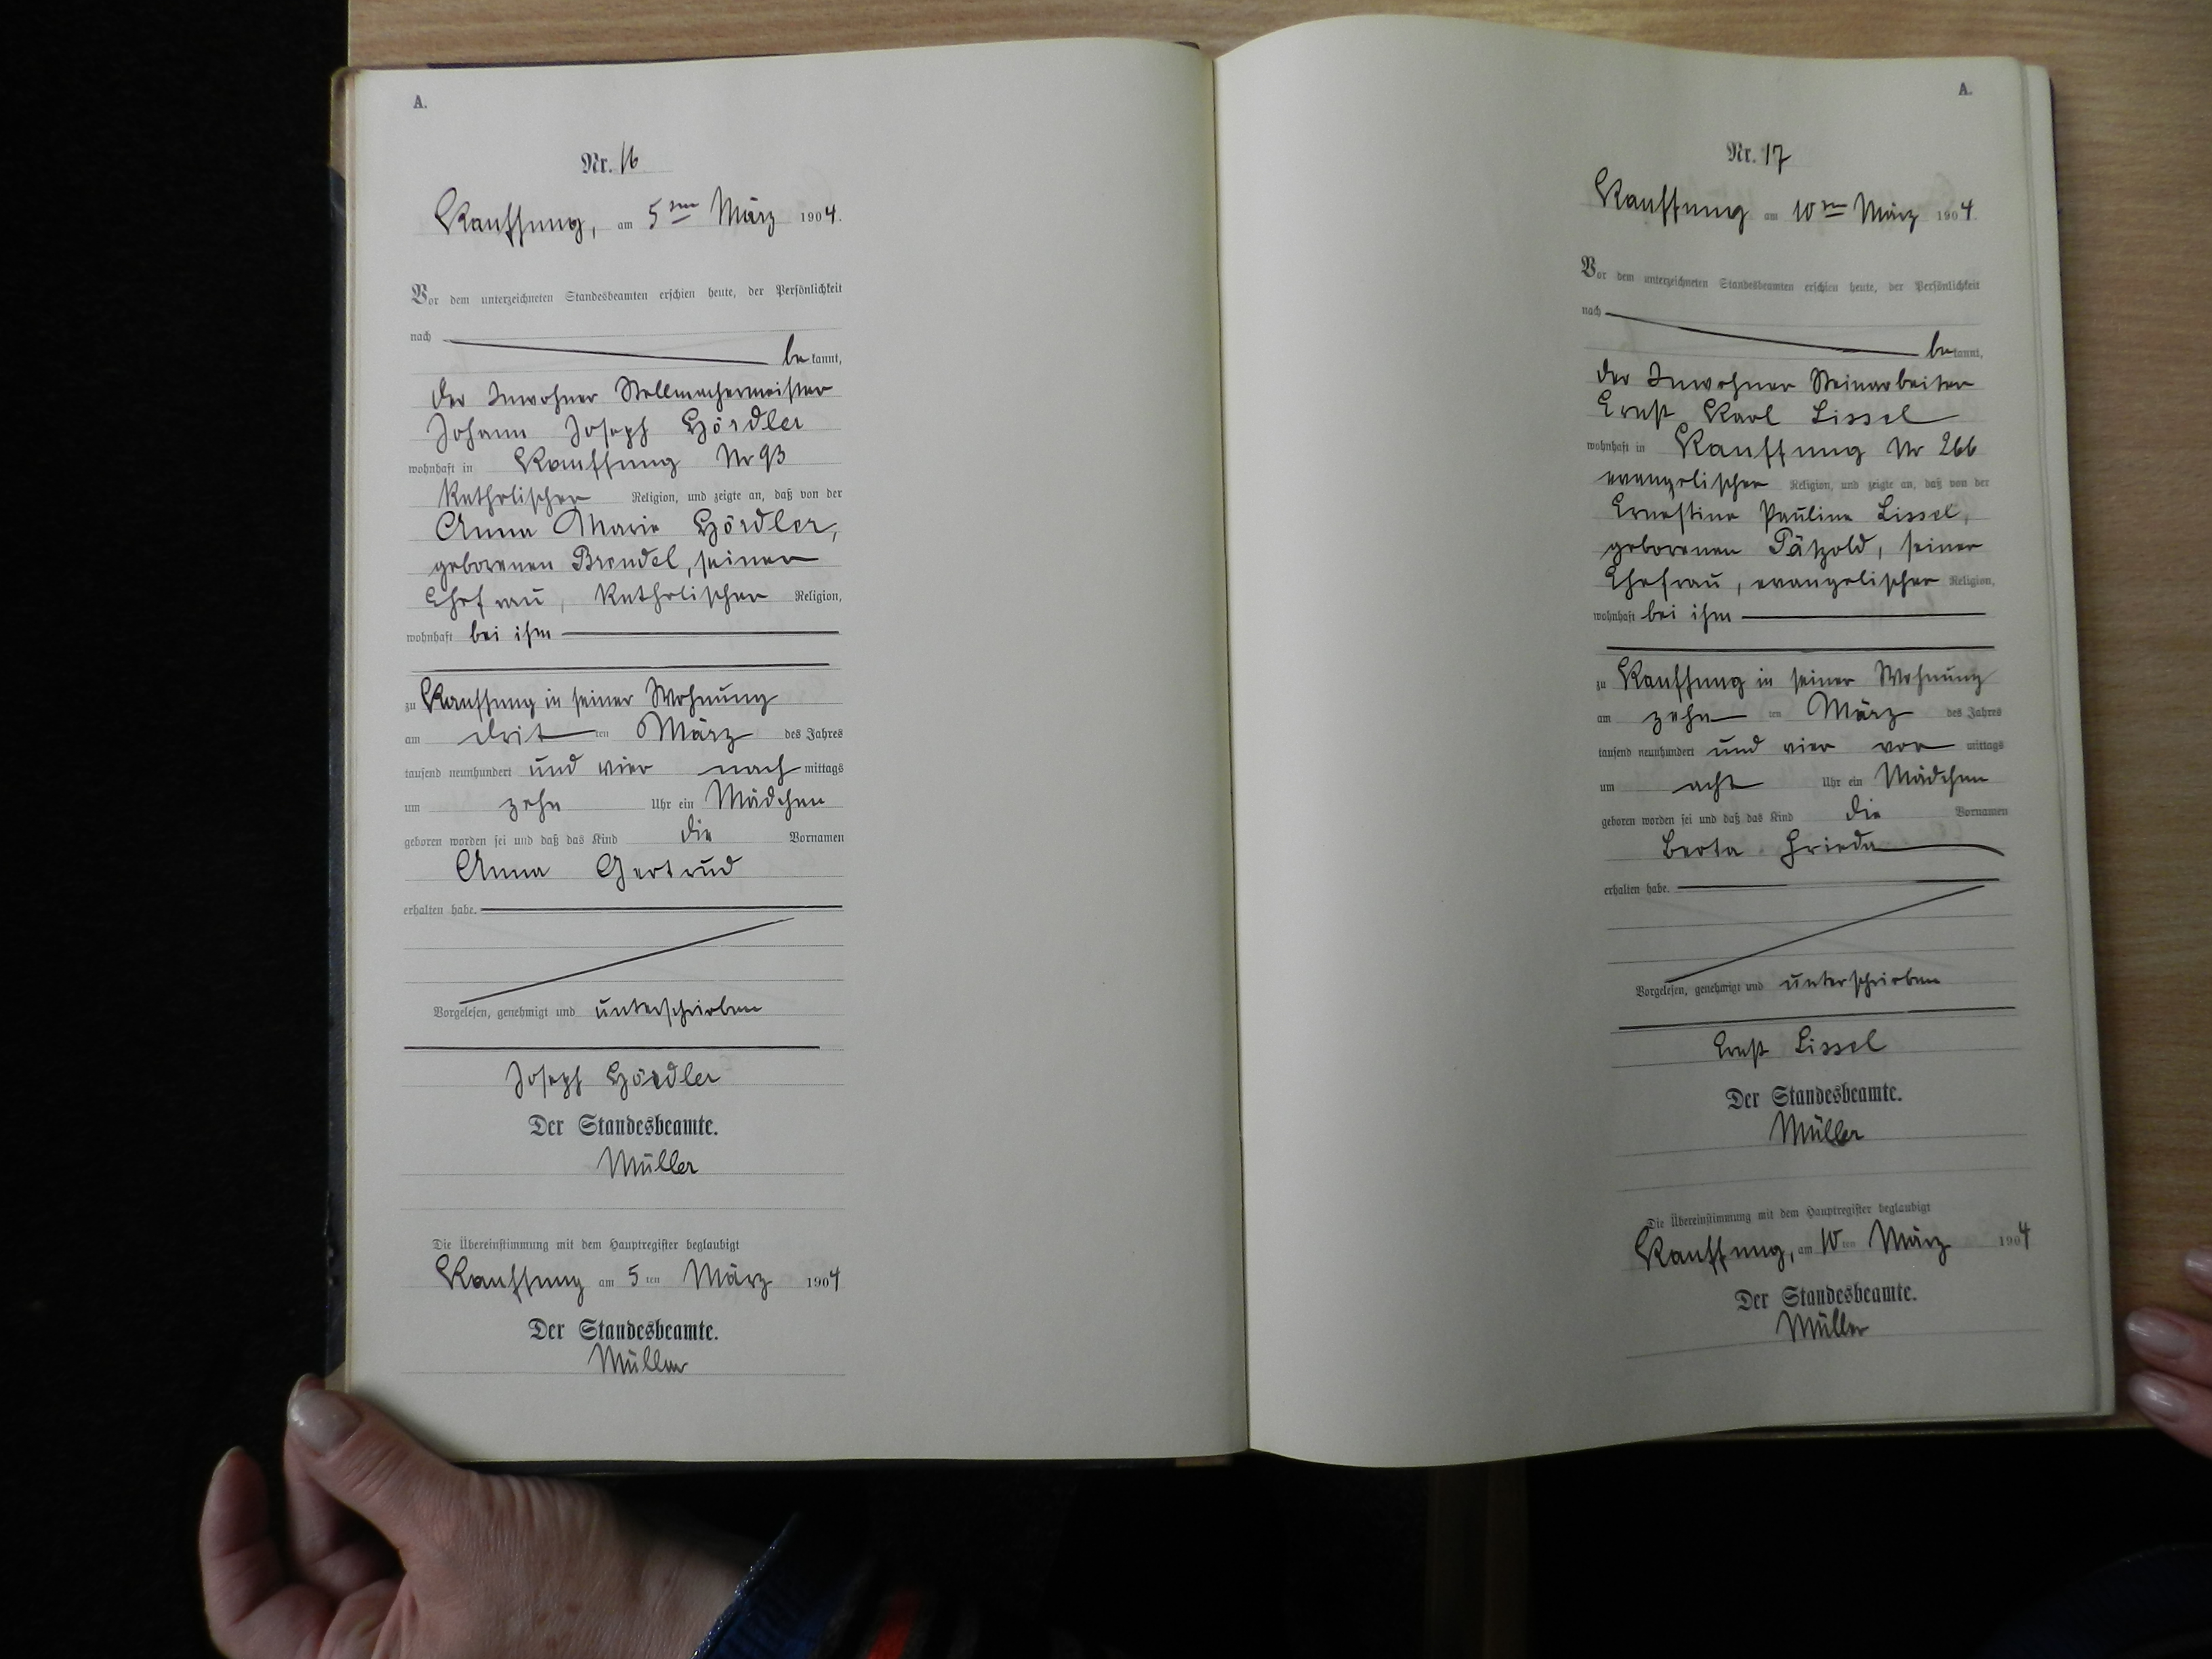 A.
Nr. 16
Kauffung, am 5ten März 1904.
Vor dem unterzeichneten Standesbeamten erschien heute, der Persönlichkeit
nach
bekannt,
der Inwohner Stellmachermeister
Johann Joseph Hördler
wohnhaft in Kauffung Nr 93
katholischer Religion, und zeigte an, daß von der
Anna Marie Hördler,
geborenen Brendel, seiner
Ehefrau, katholischer Religion,
wohnhaft bei ihm
zu Kauffung in seiner Wohnung
am dritten März des Jahres
tausend neunhundert und vier nachmittags
um zehn Uhr ein Mädchen
geboren worden sei und daß das Kind die Vornamen
Anna Gertrud
erhalten habe.
Vorgelesen, genehmigt und unterschrieben
Joseph Hördler
Der Standesbeamte.
Müller
Die Übereinstimmung mit dem Hauptregister beglaubigt
Kauffung am 5ten März 1904
Der Standesbeamte.
Müller
A.
Nr. 17
Kauffung am 10ten März 1904.
Vor dem unterzeichneten Standesbeamten erschien heute, der Persönlichkeit
nach
bekannt,
der Inwohner Steinarbeiter
Ernst Karl Lissel
wohnhaft in Kauffung Nr 266
evangelischer Religion, und zeigte an, daß von der
Ernestine Pauline Lissel,
geborenen Pätzold, seiner
Ehefrau, evangelischer Religion,
wohnhaft bei ihm
zu Kauffung in seiner Wohnung
am zehnten März des Jahres
tausend neunhundert und vier vormittags
um acht Uhr ein Mädchen
geboren worden sei und daß das Kind die Vornamen
Berta Frieda
erhalten habe.
Vorgelesen, genehmigt und unterschrieben
Ernst Lissel
Der Standesbeamte.
Müller
Die Übereinstimmung mit dem Hauptregister beglaubigt
Kauffung, am 10ten März 1904
Der Standesbeamte.
Müller